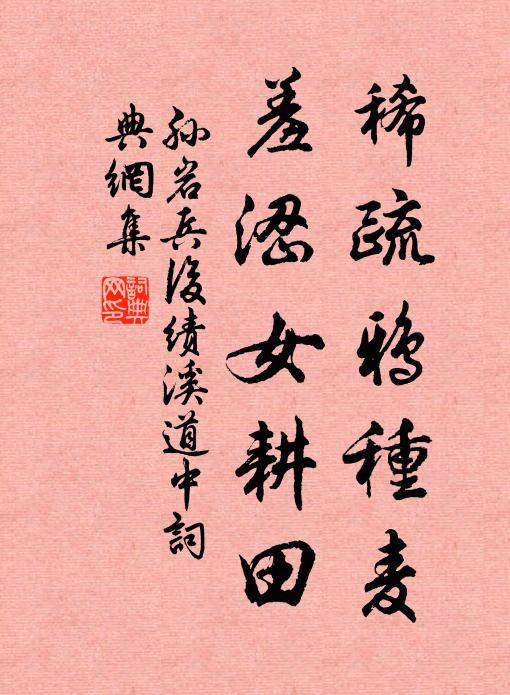 稀疏鴉種麦
羞澀女耕田
孙岩兵後績溪道中詞
典網集
詞典网印